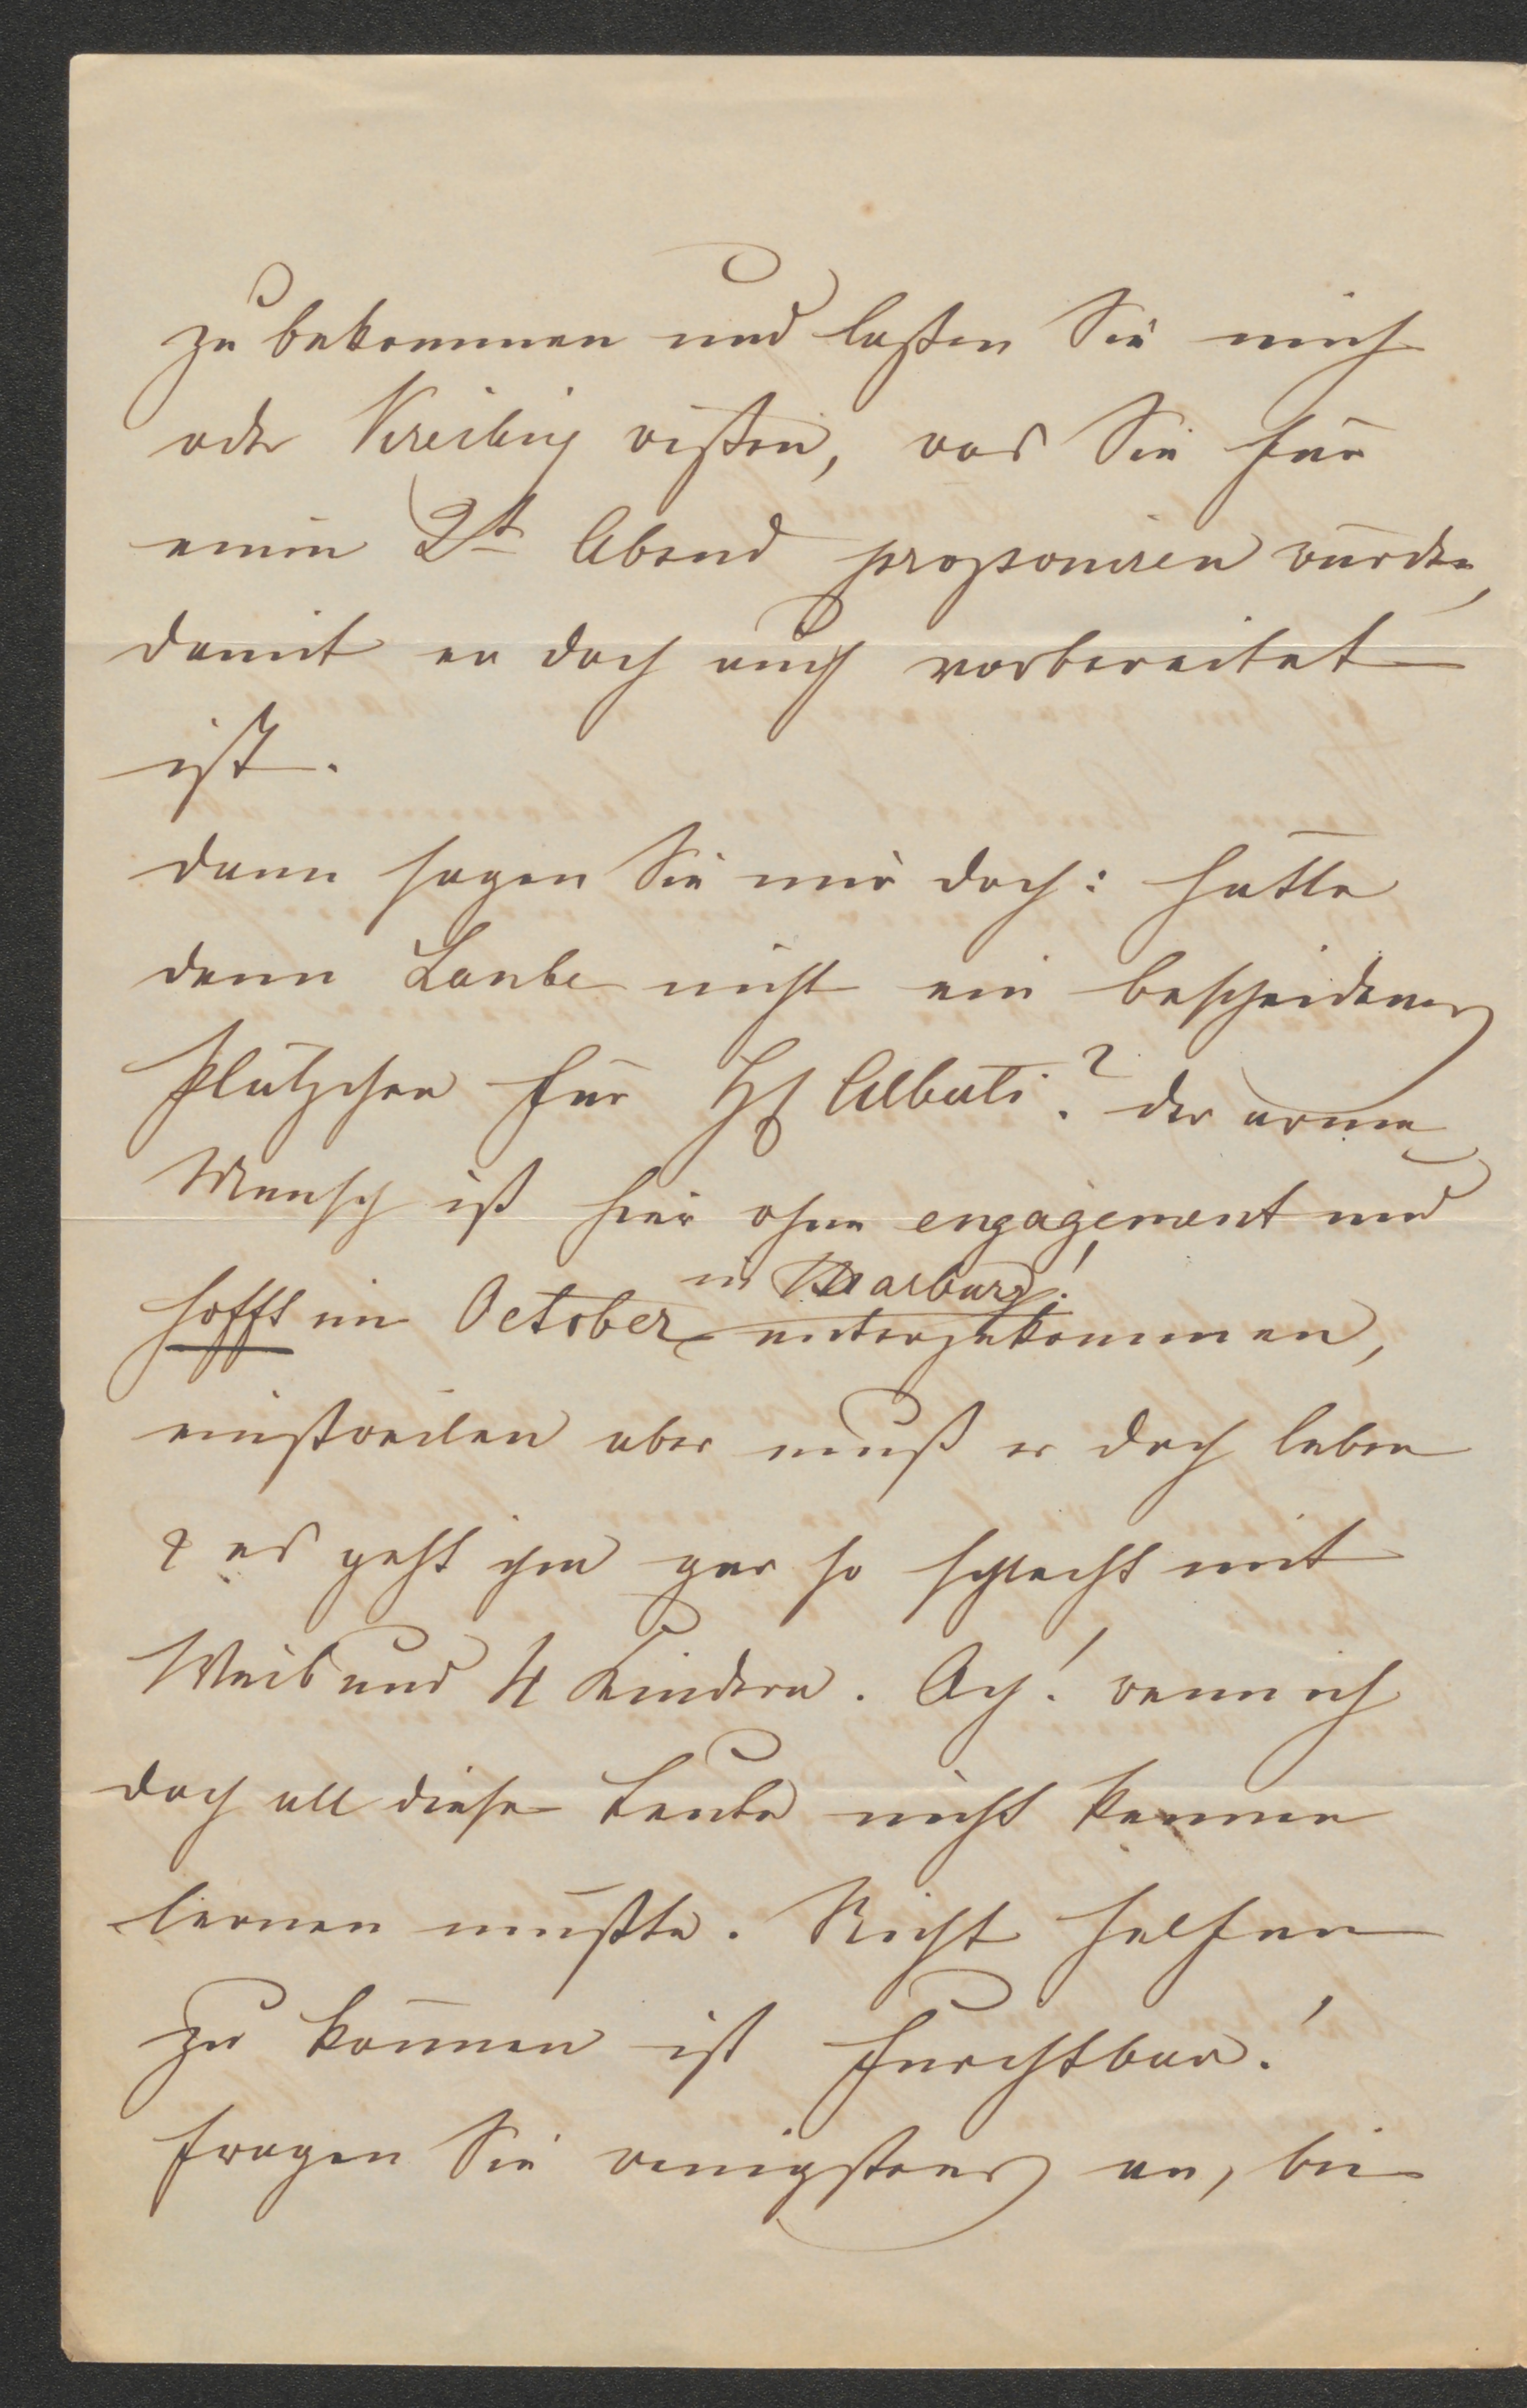 zu bekommen und laßen Sie mich
oder Kreibig wißen, was Sie für
einen 2t Abend proponiren würden,
damit er doch auch vorbereitet
ist.
dann sagen Sie mir doch: hätte
denn Laube nicht ein bescheidenes
Plätzchen für H Alberti? der arme
Mensch ist hier ohne engagement und
in Marburg!
hofft im October unterzukommen,
einstweilen aber muß er doch leben
& es geht ihm gar so schlecht mit
Weib und 4 Kindern. Ach! wenn ich
doch all diese Leute nicht kennen
lernen müßte. Nicht helfen
zu können ist furchtbar!
fragen Sie wenigstens an, bei